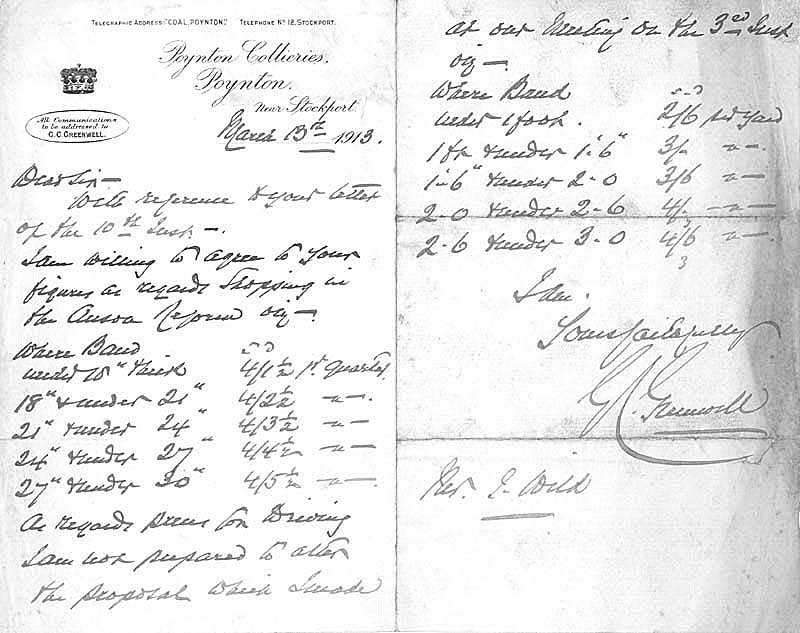 TELEGRAPHIC ADDRESS: "COAL, POYNTON." TELEPHONE No 12, STOCKPORT.
Poynton Collieries,
Poynton.
Near Stockport.
All Communications
to be addressed to
G. C. GREENWELL.
March 13th 1913.
Dear Sir —
With reference to your letter
of the 10th Inst —.
I am willing to agree to your
figures as regards Stopping in
the Anson viz —.
Where Band
under 18" Thick 4/1½ 1st Quarter
18" & under 21" 4/2½ —"—.
21" & under 24" 4/3½ —"—
24" & under 27" 4/4½ —"—
27" & under 30" 4/5½ —"—.
As regards prices for Driving
I am not prepared to alter
the proposal which I made
at our Meeting on the 3rd Inst
viz —
Where Band
under 1 foot. 2/6 per yard
1 ft & under 1-6" 3/- —"—.
1-6" & under 2-0 3/6 —"—
2-0 & under 2-6 4/- —"—
2-6 & under 3-0 4/6 —"—.
I am.
Yours faithfully
G C Greenwell
Wild